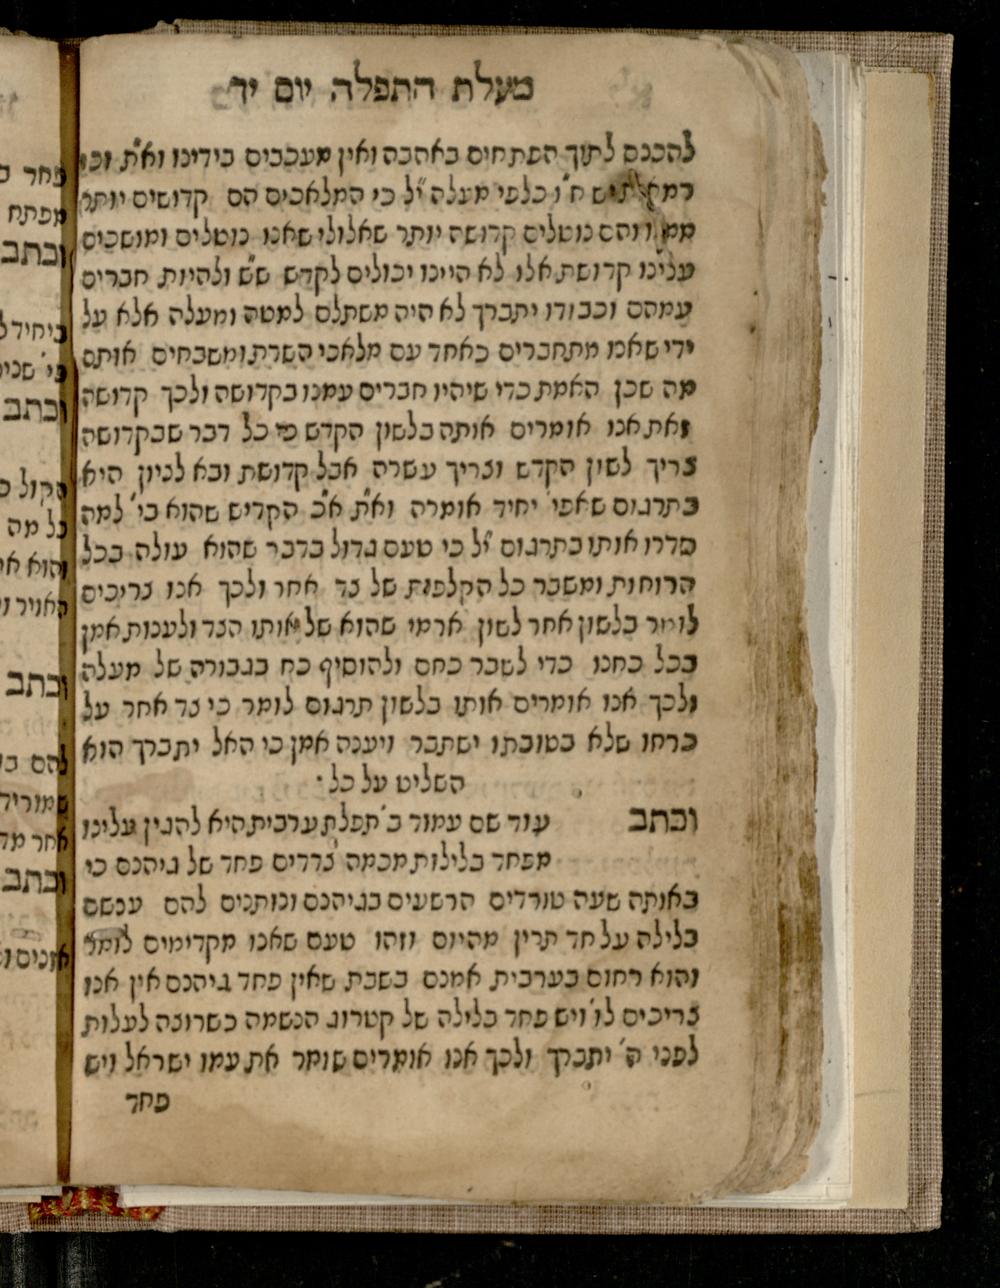 מעלת התפלה יום יד
להכנס לתוך הפתחים באהבה ואין מעכבים בידינו וא"ת וכי
ח"ו כלפי מעלה י"ל כי המלאכים הם קדושים יותר
והם נוטלים קדושה יותר שאלולי שאנו נוטלים ומושכים
עלינו קדושת אלו לא היינו יכולים לקדש ש"ש ולהיות חברים
עמהם וכבודו יתברך לא היה משתלם למטה ומעלה אלא על
ידי שאנו מתחברים כאחד עם מלאכי השרת ומשבחים אותם
מה שכן האמת כדי שיהיו חברים עמנו בקדושה ולכך קדושה
זאת אנו אומרים אותה בלשון הקדש כי כל דבר שבקדושה
צריך לשון הקדש וצריך עשרה אבל קדושת ובא לציון היא
בתרגום שאפי' יחיד אומרה וא"ת א"כ הקדיש שהוא בי' למה
סדרו אותו בתרגום י"ל כי טעם גדול בדבר שהוא עולה בכל
הרוחות ומשבר כל הקלפות של צד אחר ולכך אנו צריכים
לומר בלשון אחר לשון ארמי שהוא של אותו הצד ולענות אמן
בכל כחנו כדי לשבר כחם ולהוסיף כח בגבורה של מעלה
ולכך אנו אומרים אותו בלשון תרגום לומר כי צד אחר על
כרחו שלא בטובתו ישתבר ויענה אמן כי האל יתברך הוא
השליט על כל.
וכתב עוד שם עמוד ב' תפלת ערבית היא להגין עלינו
מפחד בלילות מכמה צדדים פחד של גיהנם כי
באותה שעה טורדים הרשעים בגיהנם ונותנים להם עונשם
בלילה על חד תרין מהיום וזהו טעם שאנו מקדימים לומר
והוא רחום בערבית אמנם בשבת שאין פחד גיהנם אין אנו
צריכים לו' ויש פחד בלילה של קטרוג הנשמה כשרוצה לעלות
לפני ה' יתברך ולכך אנו אומרים שומר את עמו ישראל ויש
פחד
מפתח
וכתב
וכתב
כל מה
וכתב
וכתב